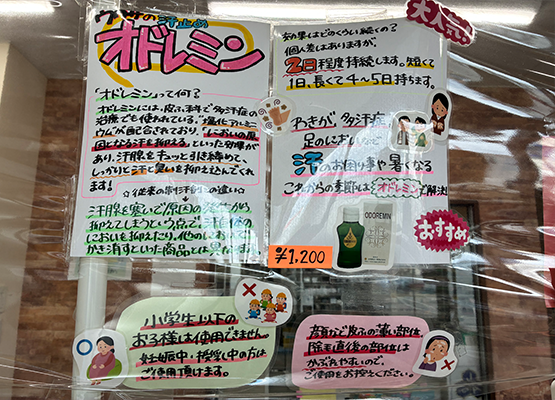 ウワサの汗止め
オドレミン
「オドレミン」って何？
オドレミンには、皮ふ科で多汗症の
治療でも使われている、"塩化アルミニ
ウム"が配合されており、「においの原
因となる汗を抑える」といった効果が
あり、汗腺をキュッと引き締めて、
しっかりと汗と臭いを抑え込んでくれ
ます！
☆従来の制汗剤との違い☆
汗腺を塞いで原因の
抑えてしまうという点で、汗自体の
においを抑えたり、他のいい
かき消すといった商品とは異
効果はどのくらい続くの？
個人差はありますが、
2日程度持続します。短くて
1日、長くて4〜5日持ちます。
大人気！
わきが、多汗症、
足のにおいなど
汗のお困り事や暑くなる
これからの季節はオドレミンで解決！
ODOREMIN
おすすめ
¥1,200
小学生以下の
お子様は使用できません。
妊娠中・授乳中の方は
ご使用頂けます。
顔など皮フの薄い部位
除毛直後の部位は
かぶれやすいので、
ご使用をお控えください。